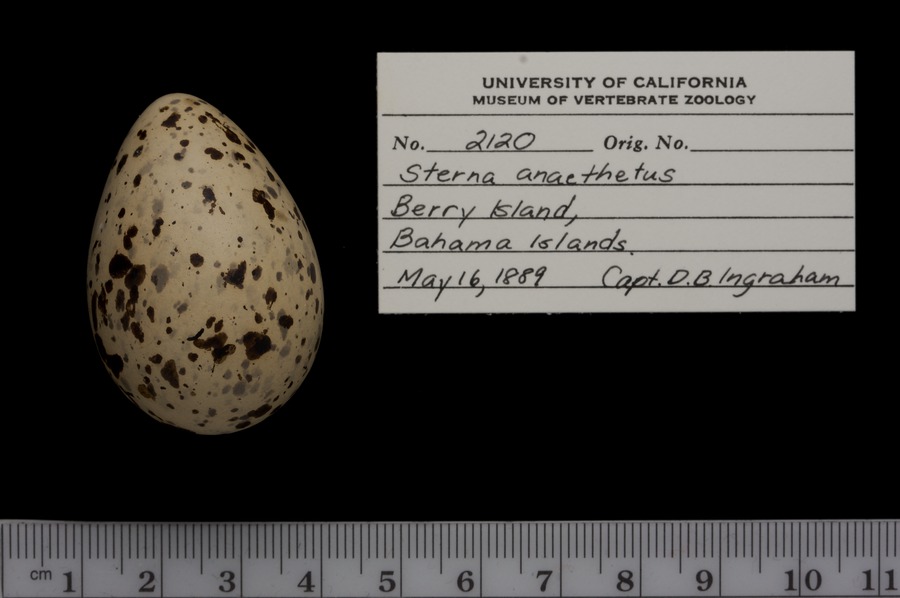 UNIVERSITY OF CALIFORNIA
MUSEUM OF VERTEBRATE ZOOLOGY
No. 2120 Orig. No.
Sterna anaethetus
Berry Island,
Bahama Islands.
May 16, 1889 Capt. D.B. Ingraham
cm 1 2 3 4 5 6 7 8 9 10 11